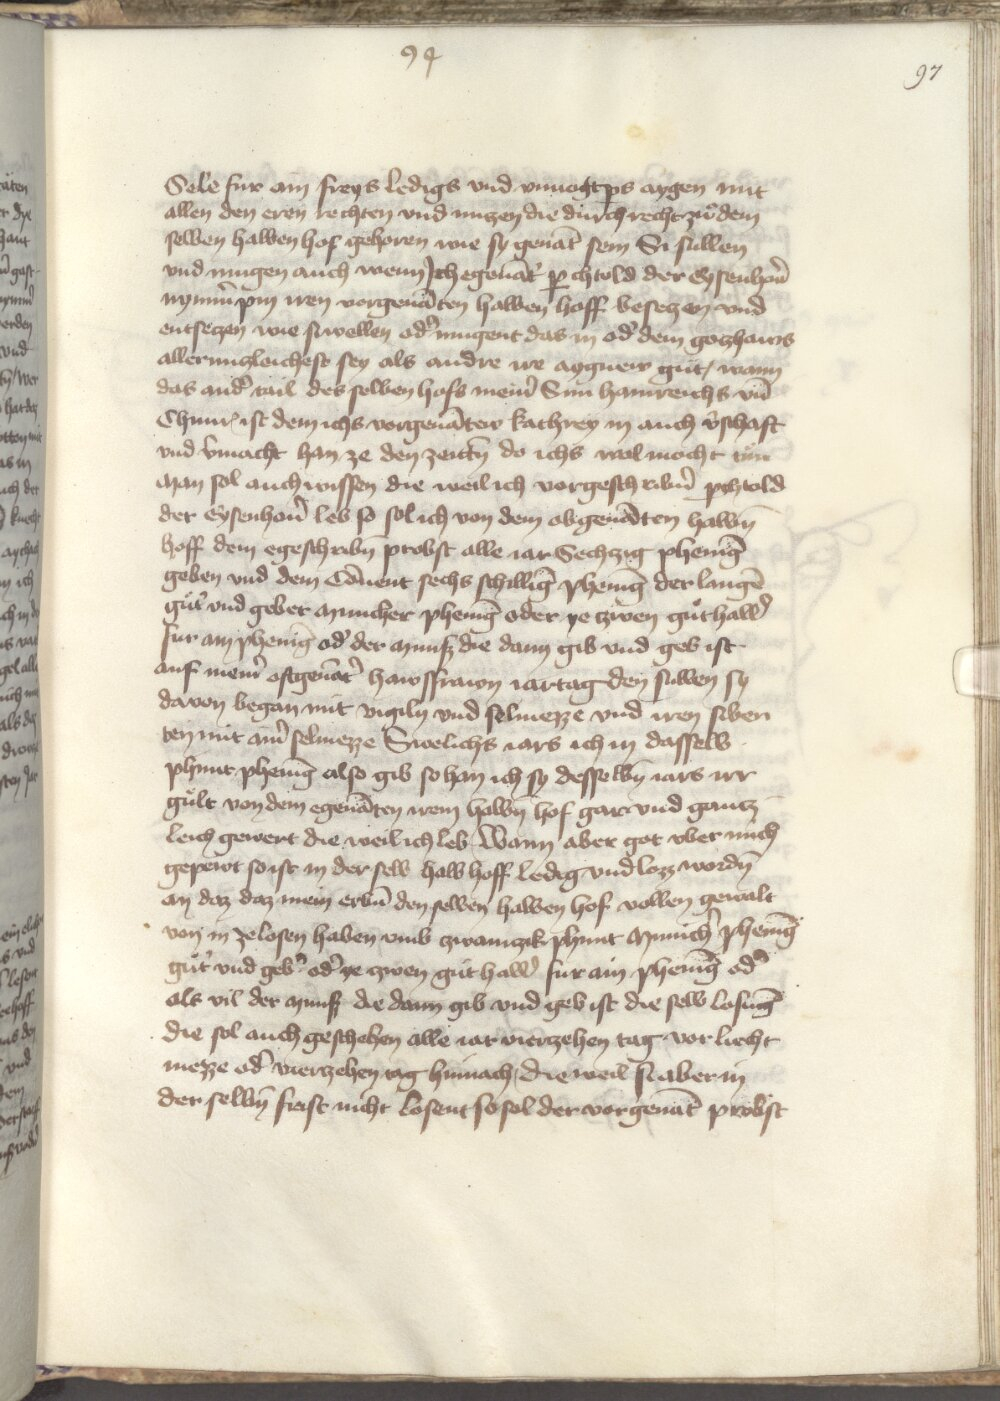 94
97
Sele fur ain freys ledigs vnd vnuogtpers aygen mit
allen den eren rechten vnd nuczen die durch recht zw dem
selben halben hof gehoren wie sy genāt sein Si sullen
vnd mugen auch wenn Ich egenāt' perchtold der Eysenhou'
nymm' pin iren vorgenāten halben hoff beseczen vnd
entseczen wie si wellen od' mugent das in od' dem goczhaws
allernuczleichest sey als andre ire aygnew gut / wann
das and' tail des selben hofs mein' Sun hainreichs vn̄
Chunr' ist dem ichs vorgenāten kathrey in auch v'schaft
vnd v'macht han ze den zeitn̄ do ichs wol mocht tun
Man sol auch wissen die weil ich vorgeschribn' perchtold
der Eysenhou' leb so sol ich von dem obgenāten halbn̄
hoff dem egeschribn̄ probst alle iar Sechzig pheniḡ
geben vnd dem Cōuent sechs schilliḡ pheniḡ der langē
gut' vnd geber Muncher pheniḡ oder ye zwen gut hall'
fur ain pheniḡ od' der munsz die dann gib vnd geb ist
auf mein' oftgenāt' hawsfrawn iartag den sullen sy
davon began mit vigily vnd selmezze vnd iren siben
ten mit ain' selmezze Swelichs iars ich in dasselb
phunt pheniḡ also gib so han ich sy desselbn̄ iars irr
gult von dem egenāten irem halbn̄ hof garr vnd gantz
leich gewert die weil ich leb Wann aber got vber mich
gepewt so ist in der selb halb hoff ledig vnd lozz wordn̄
an daz daz mein erbn̄ den selben halben hof vollen gewalt
von in ze losen haben vmb zwainczik phunt Munich' pheniḡ
gut' vnd geb' od' ye zwen gut hall' fur ain pheniḡ od'
als vil der munsz die dann gib vnd geb ist die selb losūg
die sol auch geschehen alle iar vierzehen tag vor liecht
mezze od' vierzehen tag hinnach / die weil si aber in
der selbn̄ frist nicht losent so sol der vorgenāt' probst